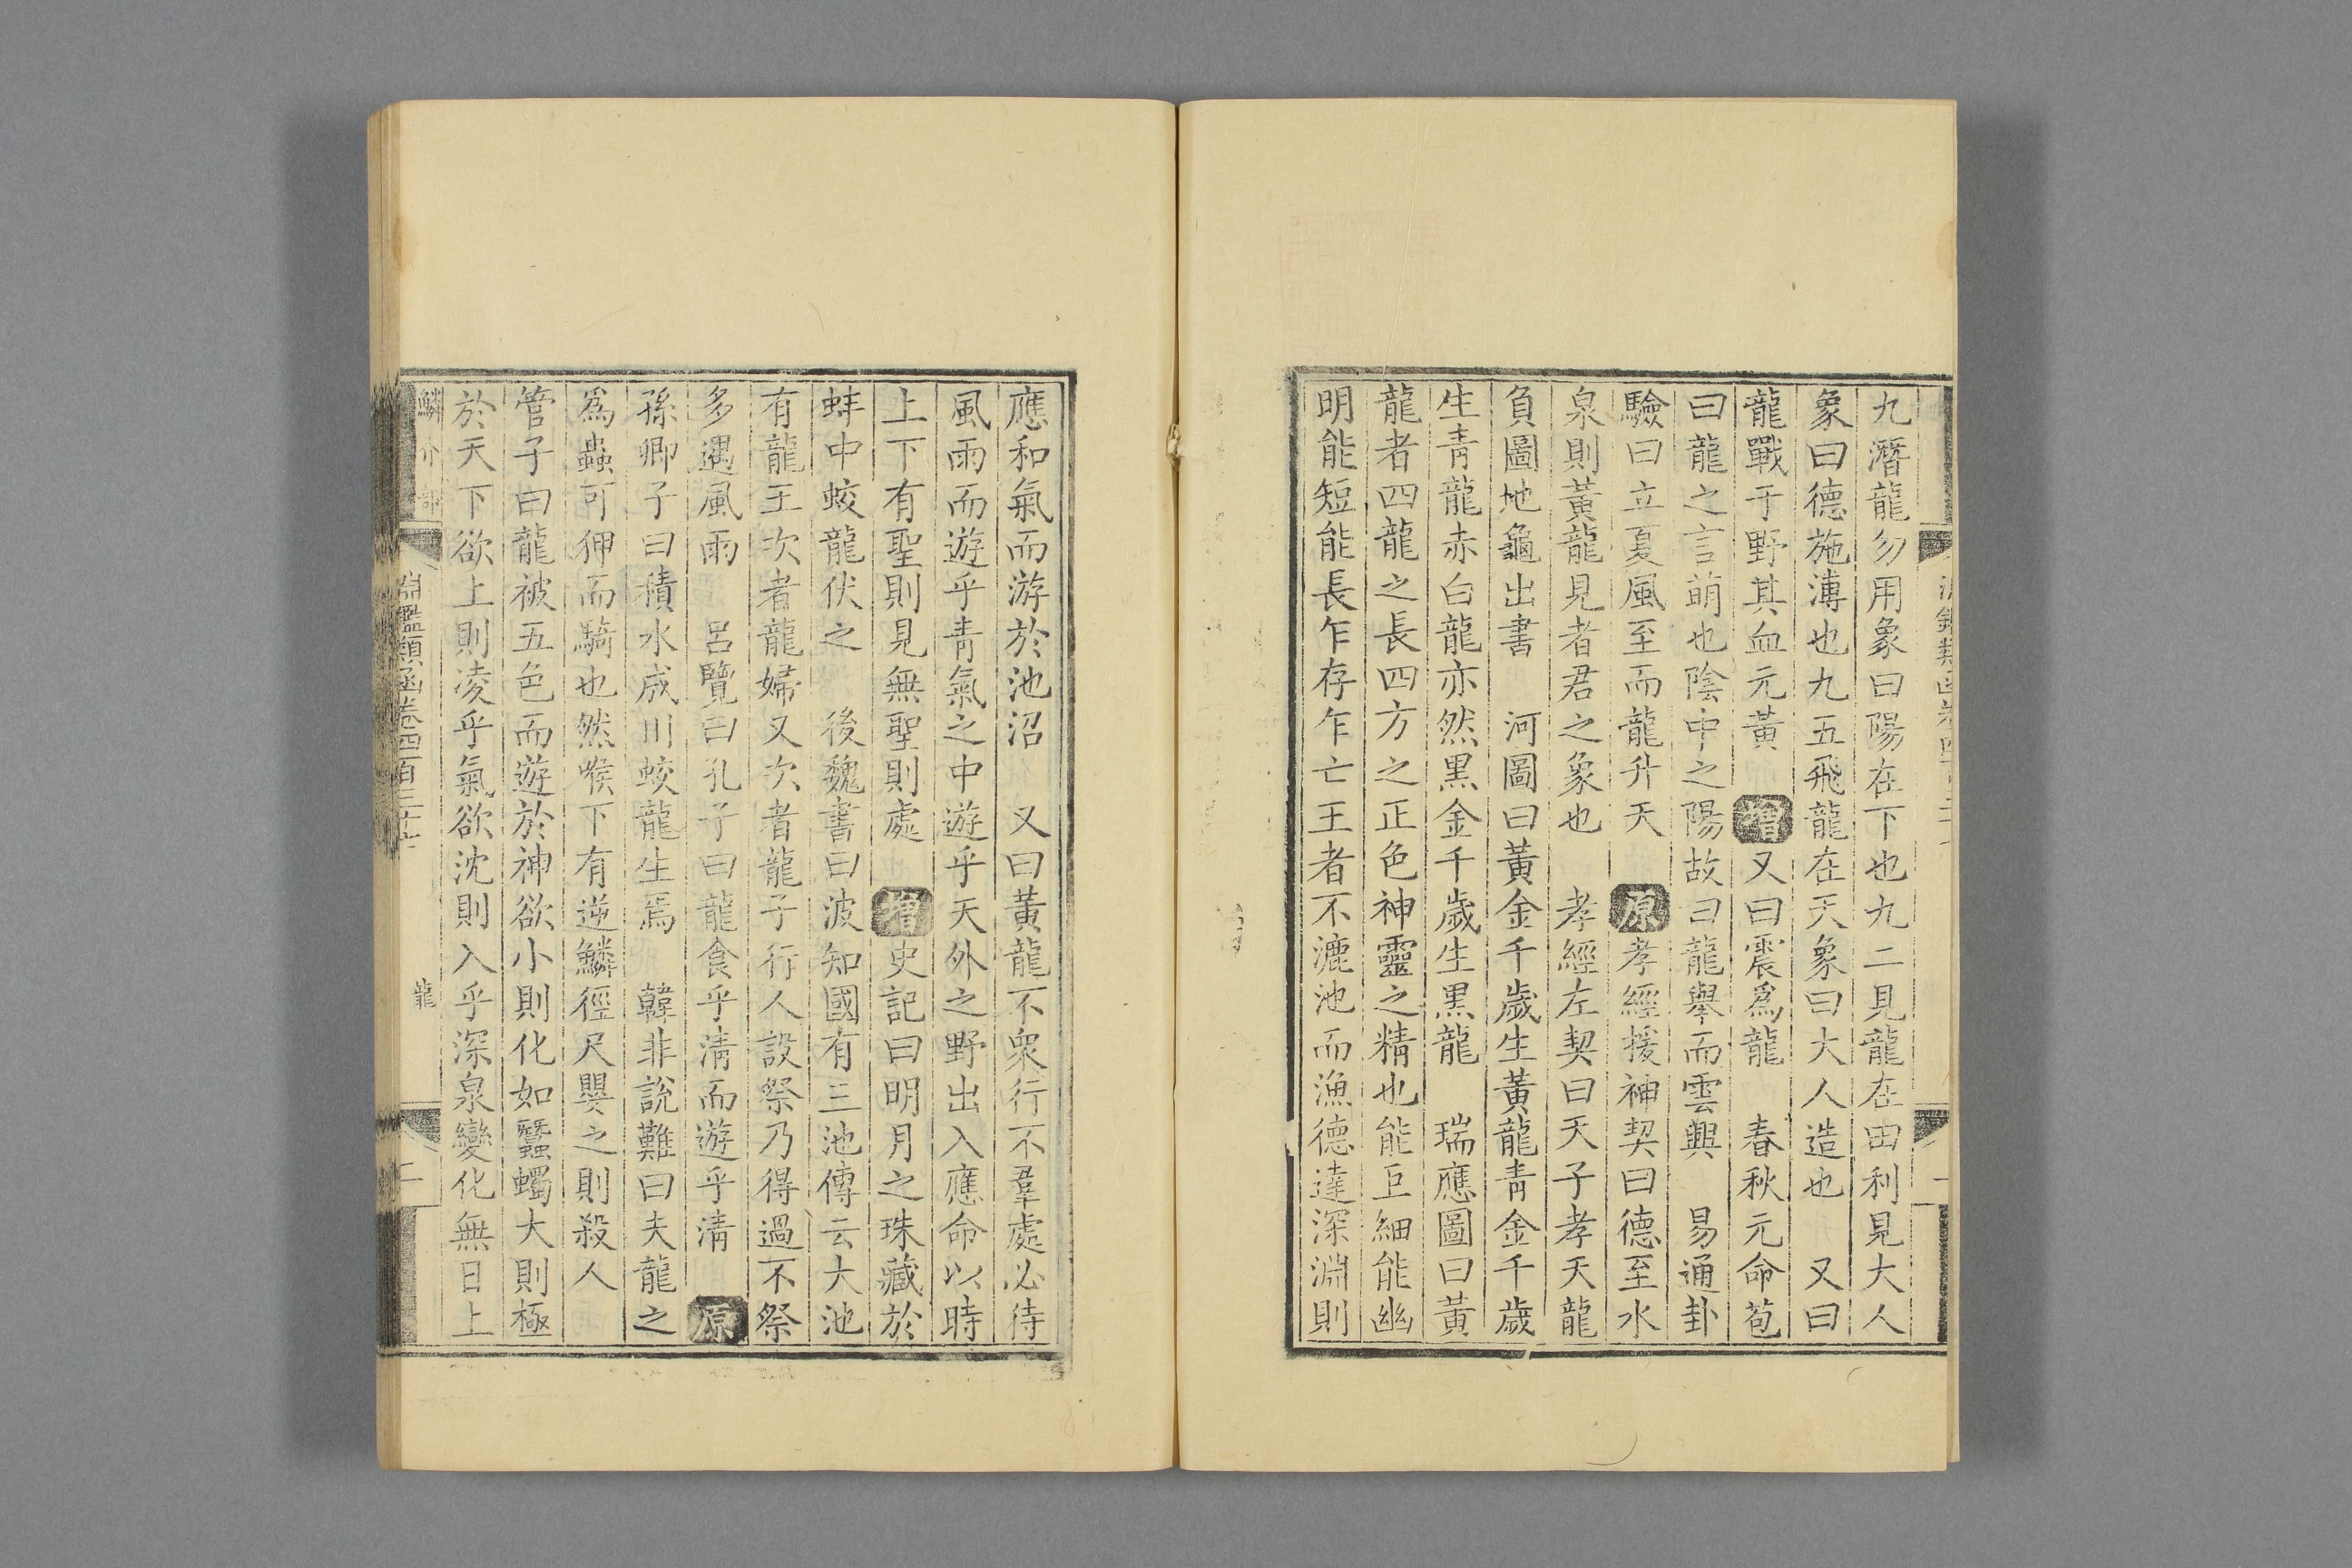 九潛龍勿用象曰陽在下也九二見龍在田利見大人
象曰德施溥也九五飛龍在天象曰大人造也　又曰
龍戰于野其血元黃　增又曰震爲龍　春秋元命苞
曰龍之言萌也陰中之陽故曰龍舉而雲興　易通卦
驗曰立夏風至而龍升天　原孝經援神契曰德至水
泉則黃龍見者君之象也　孝經左契曰天子孝天龍
負圖地龜出書　河圖曰黃金千歲生黃龍青金千歲
生青龍赤白龍亦然黑金千歲生黑龍　瑞應圖曰黃
龍者四龍之長四方之正色神靈之精也能巨細能幽
明能短能長乍存乍亡王者不漉池而漁德達深淵則
應和氣而游於池沼　又曰黃龍不衆行不羣處必待
風雨而遊乎青氣之中遊乎天外之野出入應命以時
上下有聖則見無聖則處　增史記曰明月之珠藏於
蚌中蛟龍伏之　後魏書曰波知國有三池傳云大池
有龍王次者龍婦又次者龍子行人設祭乃得過不祭
多遇風雨　呂覽曰孔子曰龍食乎清而遊乎清　原
孫卿子曰積水成川蛟龍生焉　韓非說難曰夫龍之
爲蟲可狎而騎也然喉下有逆鱗徑尺嬰之則殺人
管子曰龍被五色而遊於神欲小則化如蠶蠋大則極
於天下欲上則凌乎氣欲沈則入乎深泉變化無日上
鱗介部　淵鑑類函卷四百三十七　龍　二